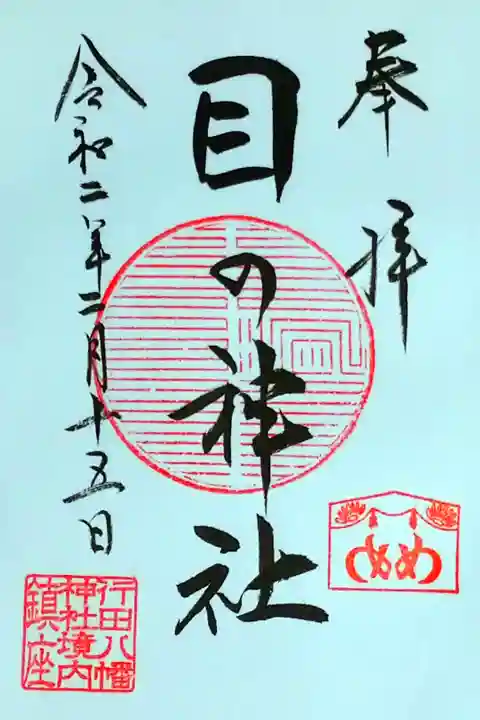 奉拝
目の神社
令和二年二月十五日
行田八幡
神社境内
鎮座
め め